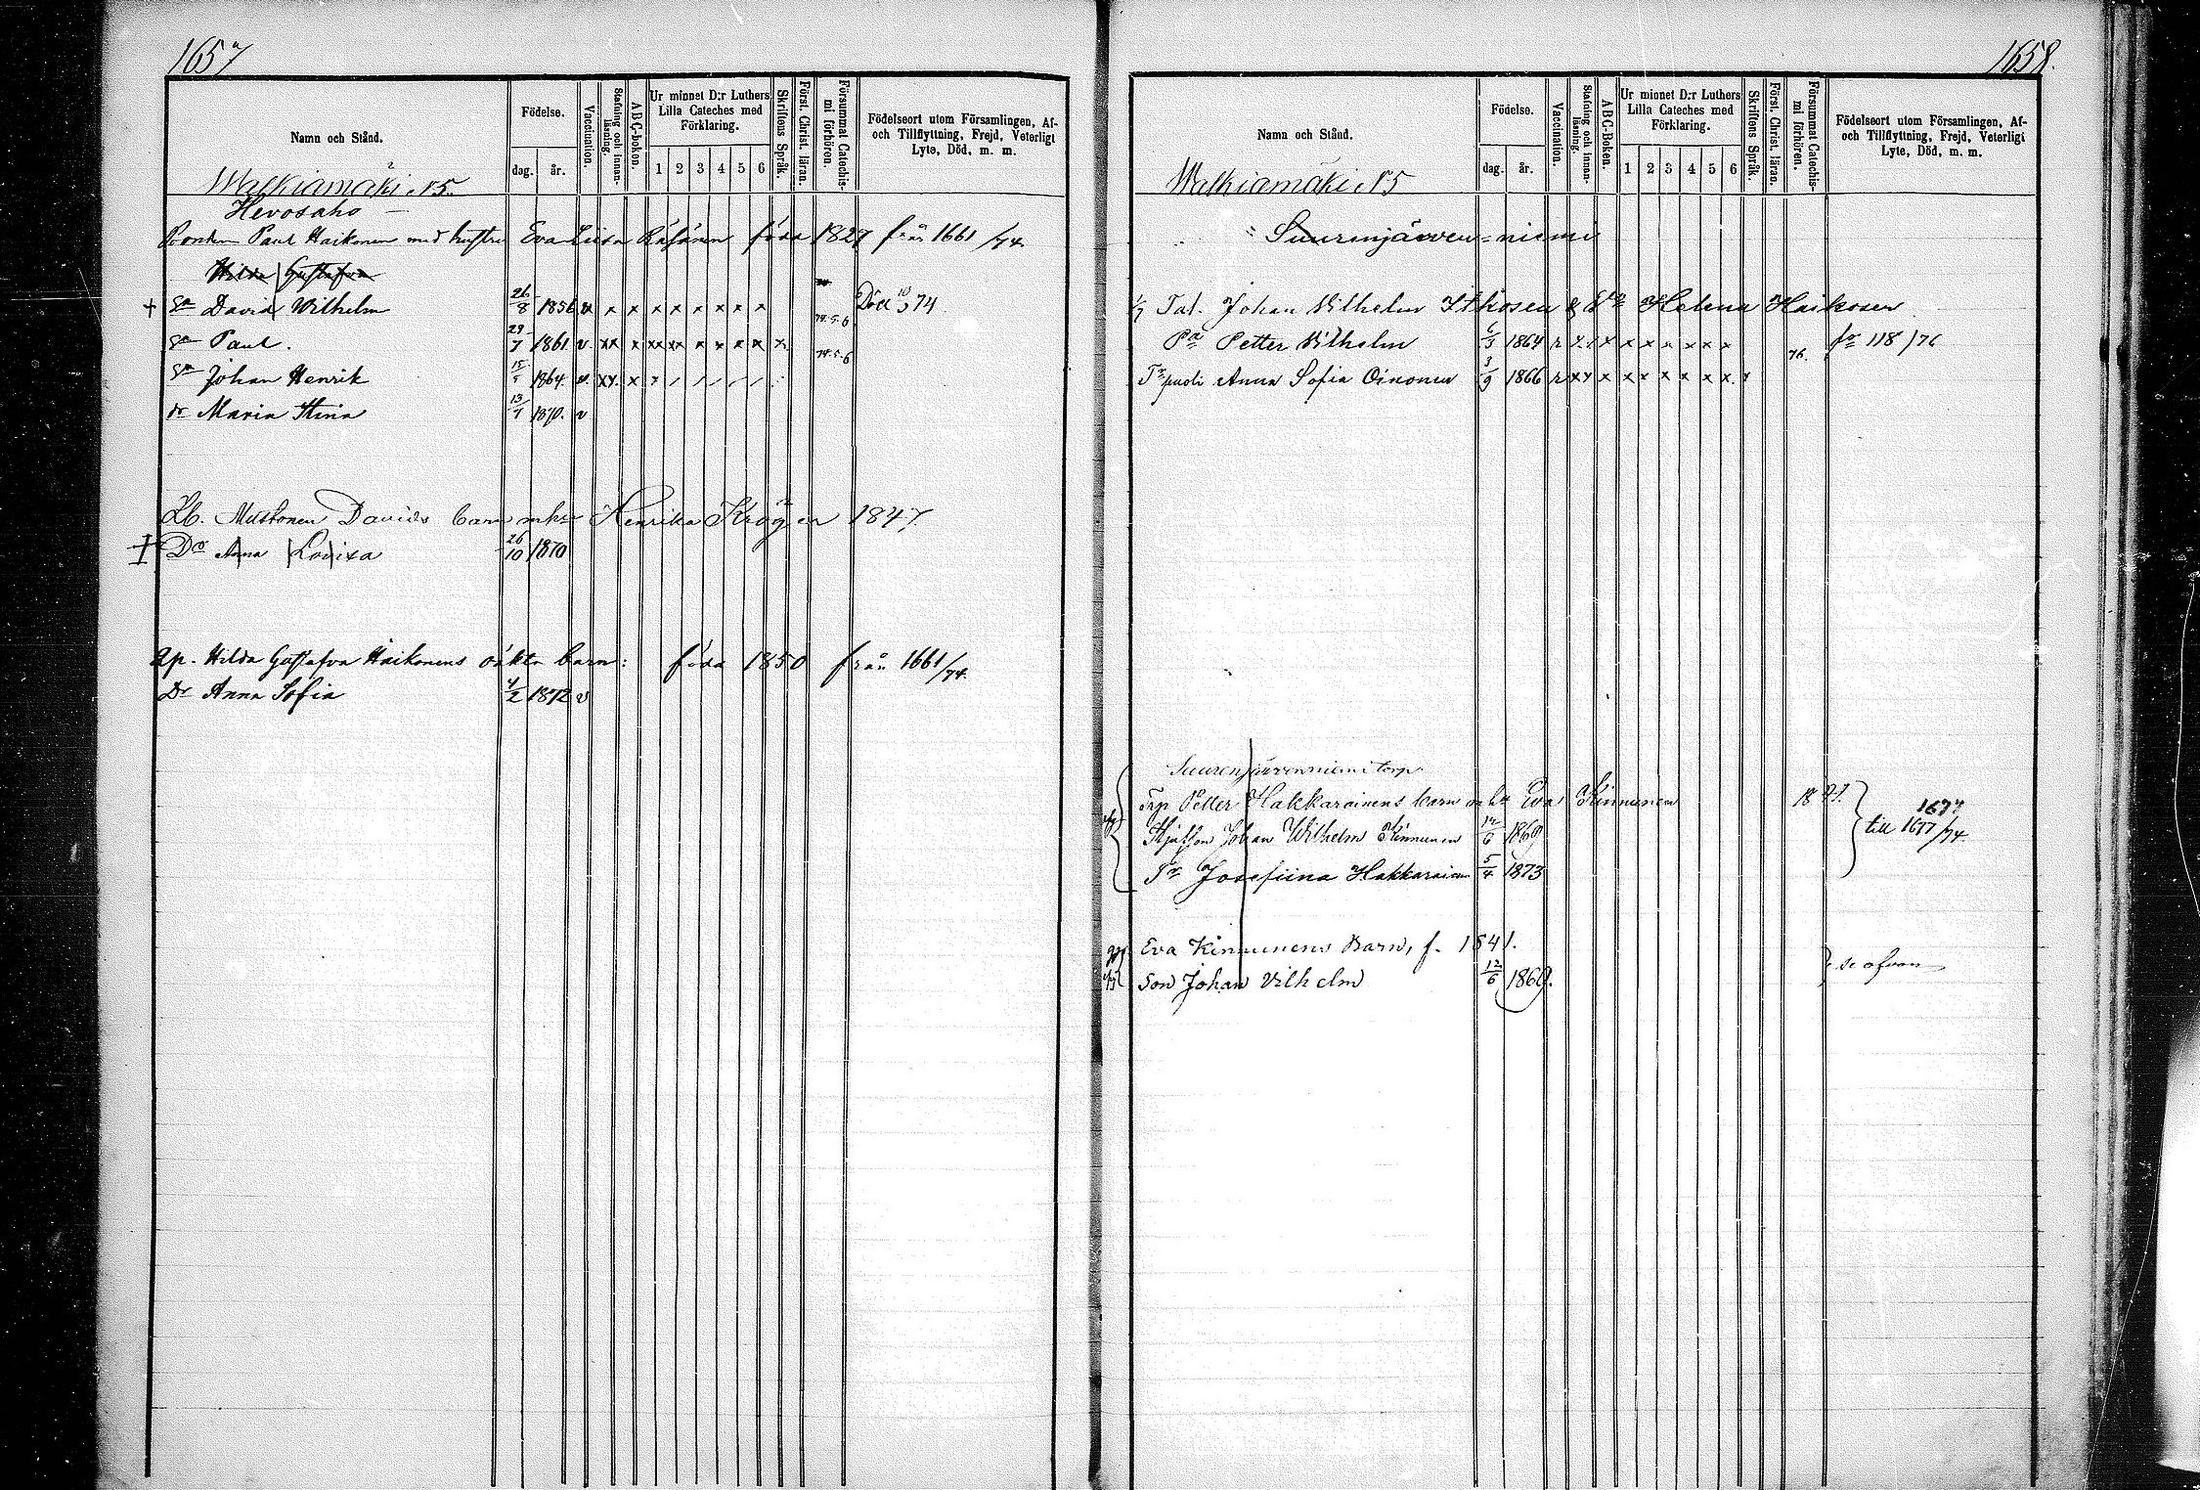 1657
Namn och Stånd.
Födelse.
dag.
år.
Vaccination.
Stafning och innanläsning.
A-B-C-boken.
Ur minnet D:r Luthers Lilla Cateches med Förklaring.
1 2 3 4 5 6
Skriftens Språk.
Först. Christ. läran.
Försummat Catechismi förhören.
Födelseort utom Församlingen, Af- och Tillflyttning, Frejd, Veterligt Lyte, Död, m. m.
Walkiamäki N5.
Hevosaho
Bonden Paul Haikonen med hustru Eva Liisa Räsänen föda 1829 från 1661/74
Hilda Gustafva
Sn David Wilhelm 26/8 1856 v x x x x x x x x Död 74
Sn Paul. 29/7 1861 v. xx x xx xx x x x x x 74.5.6
Sn Johan Henrik 1864 v. xx x x / / / / / 74.5.6
dr Maria Stina 1870. v
Mustonen Davids barn mhu Henrika Kröger 1847
Dr Anna Lovisa 26/10 1870
Hilda Gustafva Haikonens oäkta barn: föda 1850 från 1661/74
Dr Anna Sofia 1872 v
1658.
Namn och Stånd.
Födelse.
dag.
år.
Vaccination.
Stafning och innanläsning.
A-B-C-Boken.
Ur minnet D:r Luthers Lilla Cateches med Förklaring.
1 2 3 4 5 6
Skriftens Språk.
Först. Christ. läran.
Försummat Catechismi förhören.
Födelseort utom Församlingen, Af- och Tillflyttning, Frejd, Veterligt Lyte, Död, m. m.
Walkiamäki N5
Suurenjärven=niemi
Tal. Johan Vilhelm Itkosen & Helena Haikosen
Petter Vilhelm 1864 x x x x x x 118/76
puoli Anna Sofia Oinonen 1866 xx x x x x x x x x 76.
Suurenjärvenniemi torp
Trp Petter Hakkarainens barn mhu Eva Kinnunen 18
Johan Wilhelm Kinnunen 1869 till 1677/74 1677
Josefiina Hakkarainen 5/4 1873
Eva Kinnunens Barn, f. 1841.
Son Johan Vilhelm 12/6 1869. se ofvan